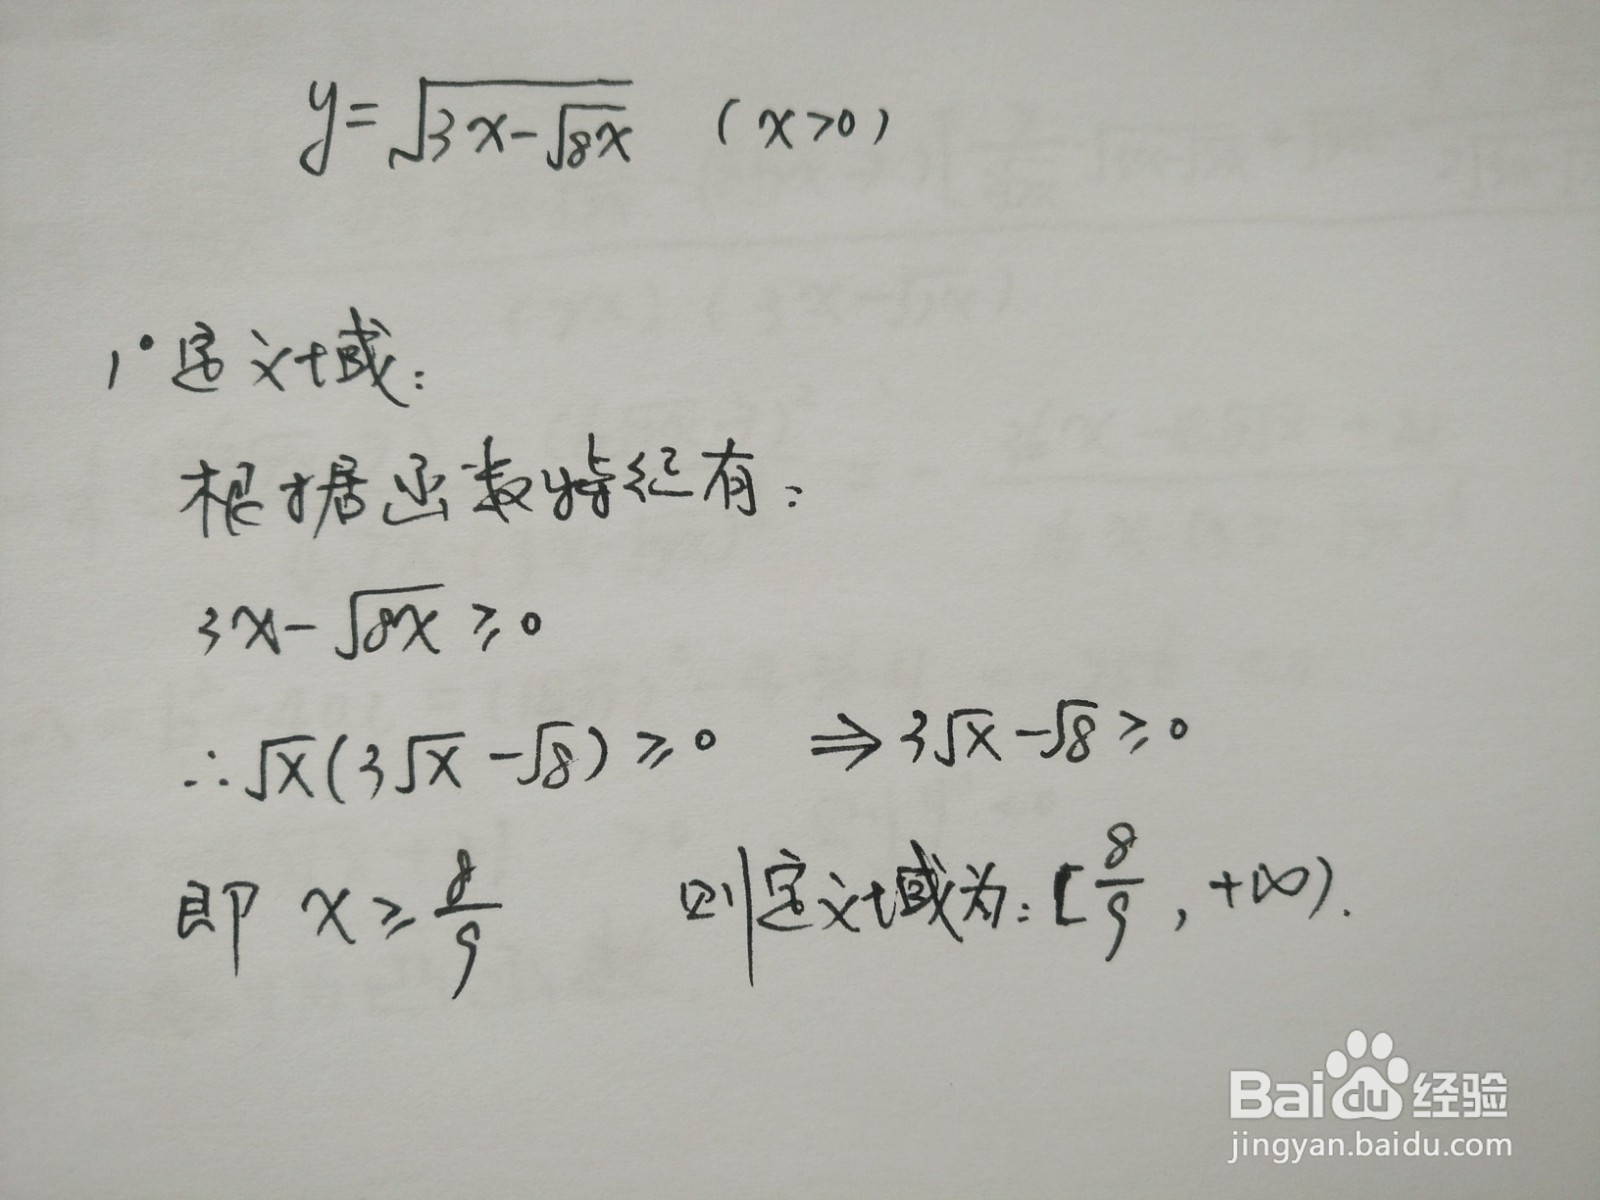 y=√(3x-√(8x)) (x>0)
1° 定义域:
根据函数特征有:
3x-√(8x)≥0
∴√x(3√x-√8)≥0 ⇒3√x-√8≥0
即 x≥8/9 则定义域为:[8/9,+∞).
Baidu经验
jingyan.baidu.com